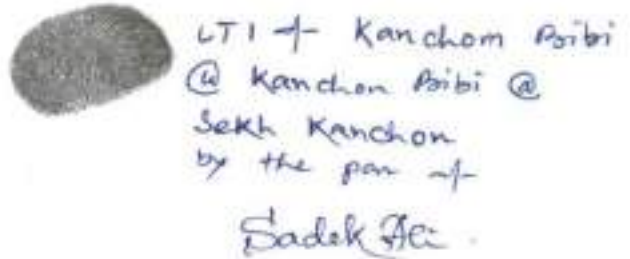 LTI of Kanchom Bibi
@ Kanchon Bibi @
Sekh Kanchon
by the pen of
Sadek Ali.